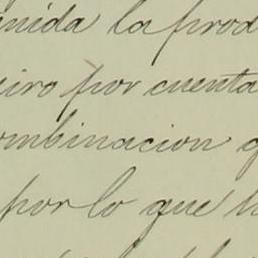 inida la prod
iro por cuenta
ombinacion q
por lo que h